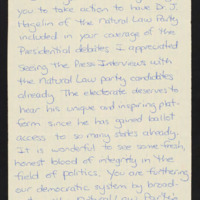 you to take action to have Dr. J.
Hagelin of the Natural Law Party
included in your coverage of the
Presidential debates. I appreciated
Seeing the Press Interviews with
the Natural Law party candidates
already. The electorate deserves to
hear his unique and inspiring plat-
form since he has gained ballot
access to so many states already.
It is wonderful to see some fresh,
honest blood of integrity in the
field of politics. You are furthering
our democratic system by broad-
Natural Law Party's